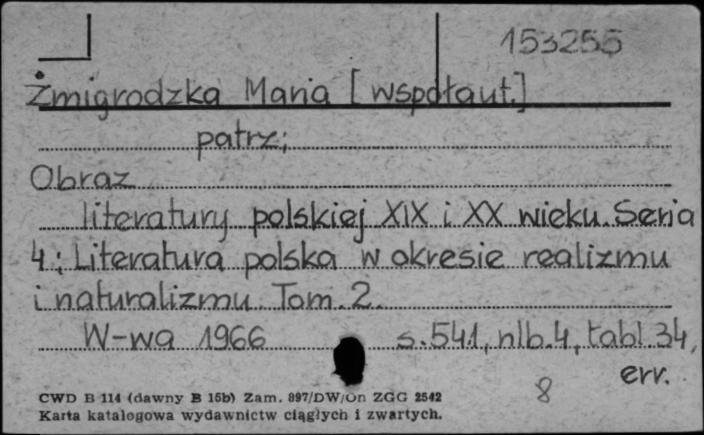 153255
Żmigrodzka Maria [współaut.]
patrz;
Obraz
literatury polskiej XIX i XX wieku. Seria
4; Literatura polska w okresie realizmu
i naturalizmu. Tom. 2.
W-wa 1966 s. 541, nlb. 4, tabl. 34,
err.
8
CWD B 114 (dawny B 15b) Zam. 897/DW/On ZGG 2542
Karta katalogowa wydawnictw ciągłych i zwartych.